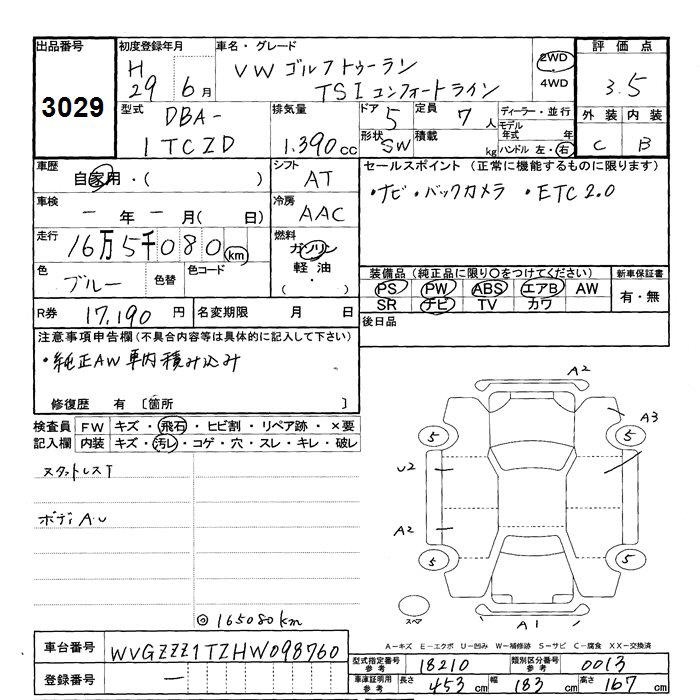 出品番号
3029
初度登録年月
H
29 6月
車名・グレード
VW ゴルフトゥーラン
TSI コンフォートライン
2WD
4WD
評価点
3.5
外装 内装
C B
型式
DBA-
1TCZD
排気量
1.390cc
ドア
5
形状
SW
定員
7人
積載
kg
ディーラー・並行
モデル年式 年
ハンドル 左・右
車歴
自家用・( )
シフト
AT
セールスポイント (正常に機能するものに限ります)
・ナビ・バックカメラ ・ETC2.0
車検
ー年ー月( 日)
冷房
AAC
走行
16万5千080km
燃料
ガソリン
軽油
( ・ )
色
ブルー
色替
色コード
装備品(純正品に限り○をつけてください)
PS PW ABS エアB AW
SR ナビ TV カワ
新車保証書
有・無
R券 17,190 円
名変期限 月 日
後日品
注意事項申告欄(不具合内容等は具体的に記入して下さい)
・純正AW 車内積み込み
修復歴 有〔箇所 〕
検査員記入欄
FW キズ・飛石・ヒビ割・リペア跡・×要
内装 キズ・汚レ・コゲ・穴・スレ・キレ・破レ
スタットレスT
ボディA.U
◎165080km
A2
A3
5 5
U2
A2
5 5
スペア
A1
A-キズ E-エクボ U-凹み W-補修跡 S-サビ C-腐食 XX-交換済
車台番号 WVGZZZ1TZHW098760
登録番号 ー
型式指定番号 参考 18210
類別区分番号 参考 0013
車庫証明用 参考 長さ 453cm 幅 183cm 高さ 167cm